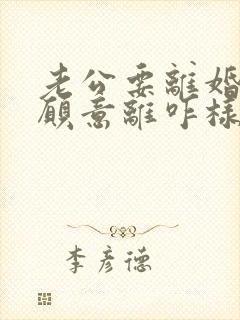 老公要離婚
願意離咋樣
李彥德